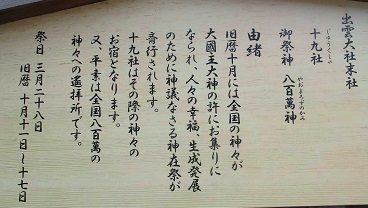 出雲大社末社
十九社
じゅうくしゃ
御祭神 八百萬神
やおよろずのかみ
由緒
旧暦十月には全国の神々が
大國主大神の許にお集りに
なられ、人々の幸福、生成発展
のために神議なさる神在祭が
斎行されます。
十九社はその際の神々の
お宿となります。
又、平素は全国八百萬の
神々への遙拝所です。
祭日 三月二十八日
旧暦 十月十一日～十七日